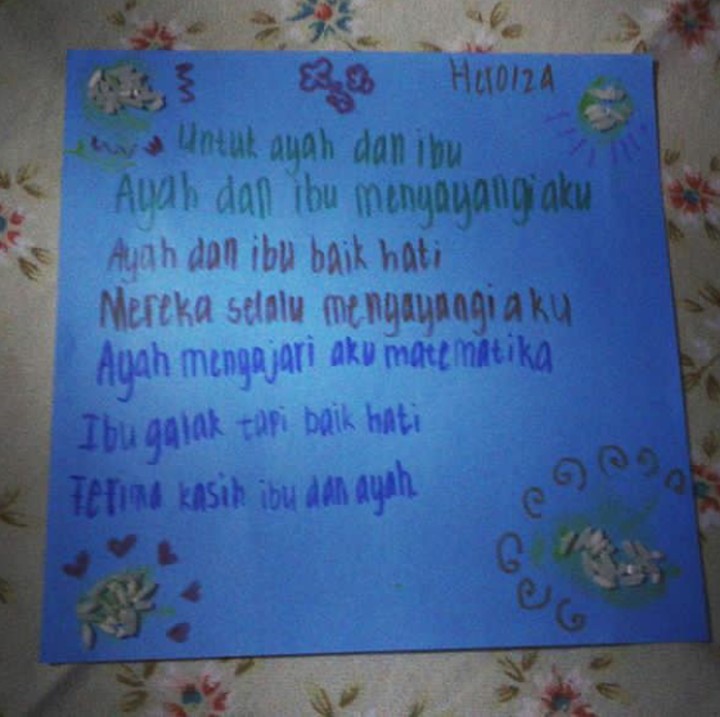 Heroiza
Untuk ayah dan ibu
Ayah dan ibu menyayangi aku
Ayah dan ibu baik hati
Mereka selalu menyayangi aku
Ayah mengajari aku matematika
Ibu galak tapi baik hati
Terima kasih ibu dan ayah